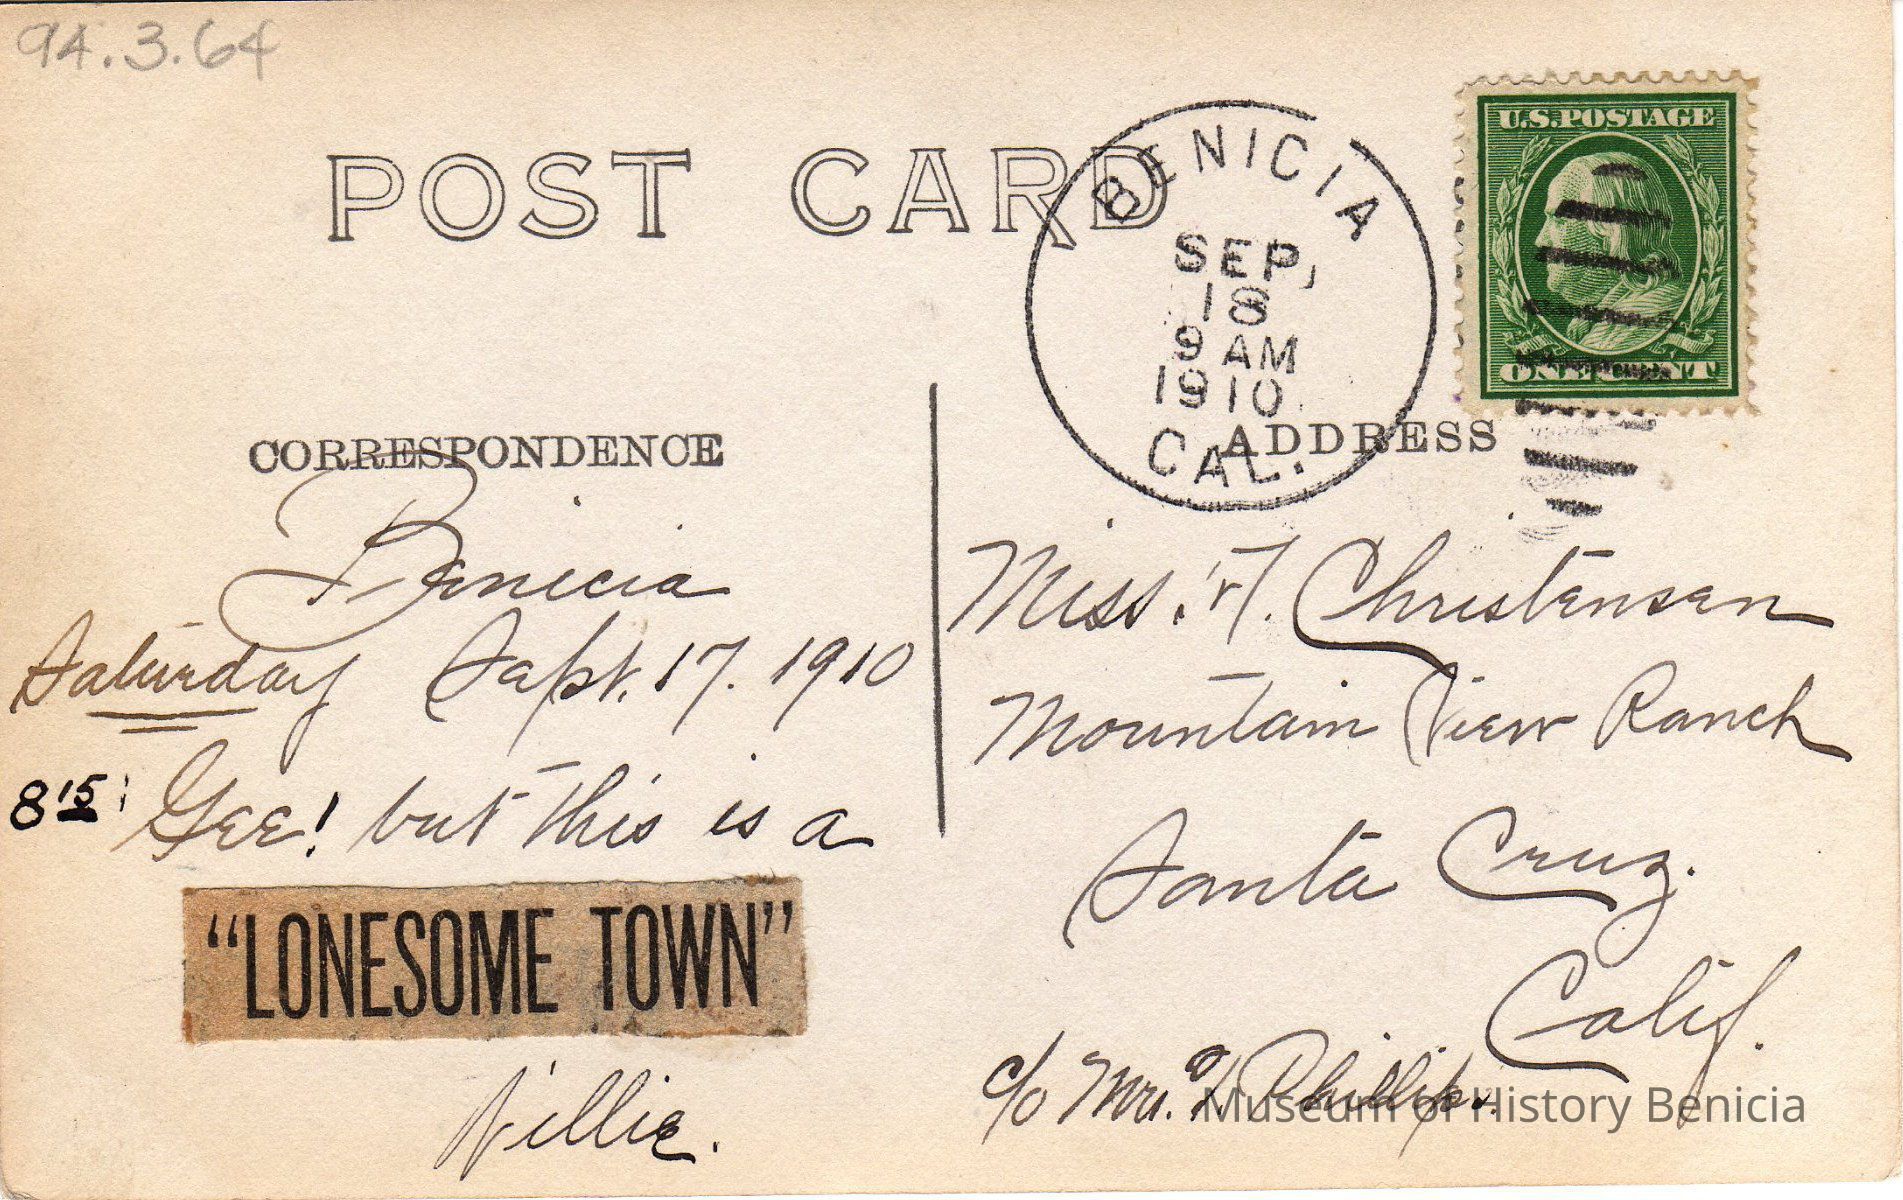 94.3.64
POST CARD
BENICIA
SEP,
18
9 AM
1910
CAL.
U.S.POSTAGE
ONE CENT
CORRESPONDENCE
Benicia
Saturday Sept. 17. 1910
815: Gee! but this is a
"LONESOME TOWN"
Willie.
ADDRESS
Miss. Christensen
Mountain View Ranch
Santa Cruz.
Calif.
c/o Mrs. Phillips.
Museum of History Benicia